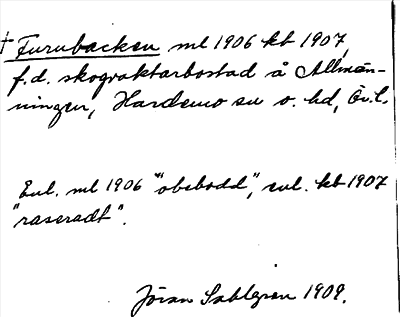 † Furubacken ml 1906 kb 1907,
f.d. skogvaktarbostad å Allmän-
ningen, Hardemo sn o. hd, Ör.l.
Enl. ml 1906 "obebodd", enl. kb 1907
"raseradt".
Jöran Sahlgren 1909.